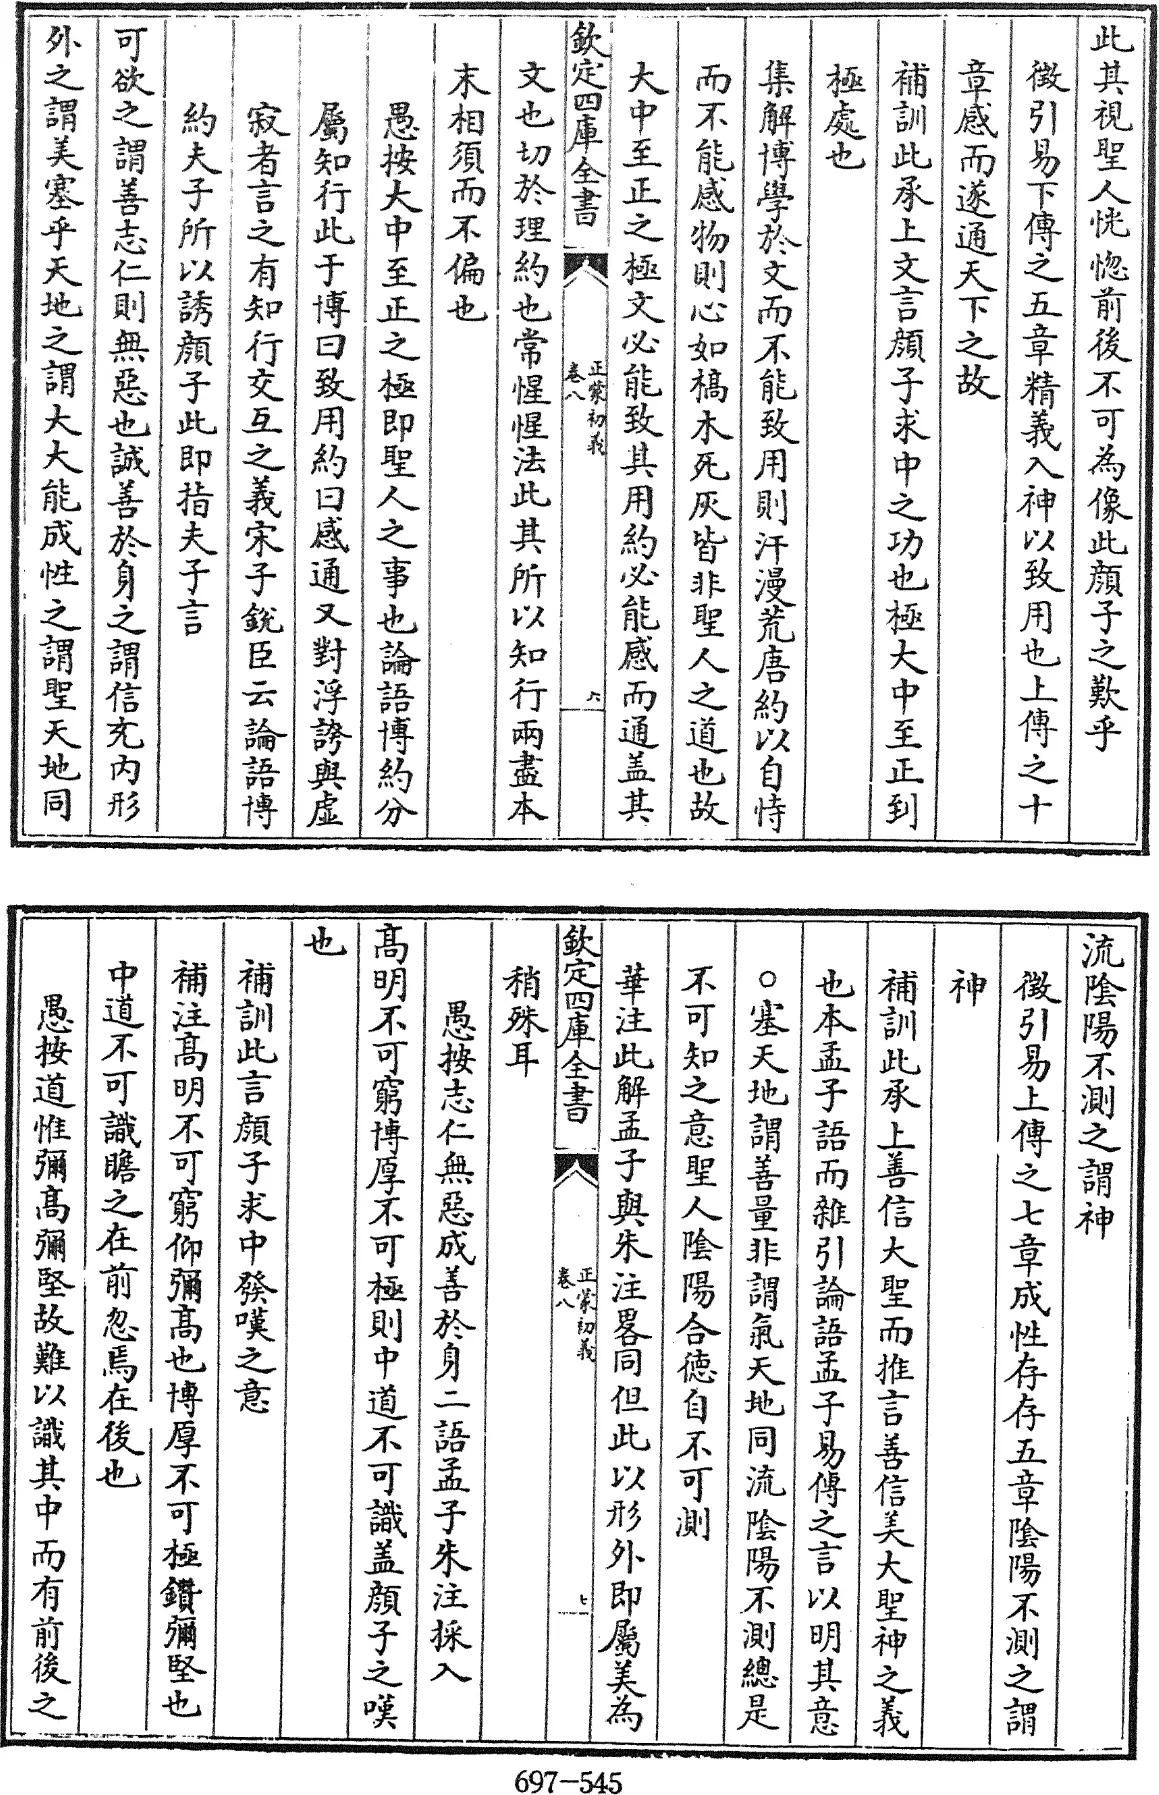 此其視聖人恍惚前後不可為像此顏子之歎乎
徵引易下傳之五章精義入神以致用也上傳之十
章感而遂通天下之故
補訓此承上文言顏子求中之功也極大中至正到
極處也
集解博學於文而不能致用則汗漫荒唐約以自恃
而不能感物則心如槁木死灰皆非聖人之道也故
大中至正之極文必能致其用約必能感而通盖其
欽定四庫全書
正蒙初義
卷八
六
文也切於理約也常惺惺法此其所以知行兩盡本
末相須而不偏也
愚按大中至正之極即聖人之事也論語博約分
屬知行此于博曰致用約曰感通又對浮誇與虛
寂者言之有知行交互之義宋子銳臣云論語博
約夫子所以誘顏子此即指夫子言
可欲之謂善志仁則無惡也誠善於身之謂信充內形
外之謂美塞乎天地之謂大大能成性之謂聖天地同
流陰陽不測之謂神
徵引易上傳之七章成性存存五章陰陽不測之謂
神
補訓此承上善信大聖而推言善信美大聖神之義
也本孟子語而雜引論語孟子易傳之言以明其意
○塞天地謂善量非謂氣天地同流陰陽不測總是
不可知之意聖人陰陽合德自不可測
華注此解孟子與朱注畧同但此以形外即屬美為
欽定四庫全書
正蒙初義
卷八
七
稍殊耳
愚按志仁無惡成善於身二語孟子朱注採入
高明不可窮博厚不可極則中道不可識盖顏子之嘆
也
補訓此言顏子求中發嘆之意
補注高明不可窮仰彌高也博厚不可極鑽彌堅也
中道不可識瞻之在前忽焉在後也
愚按道惟彌高彌堅故難以識其中而有前後之
697-545